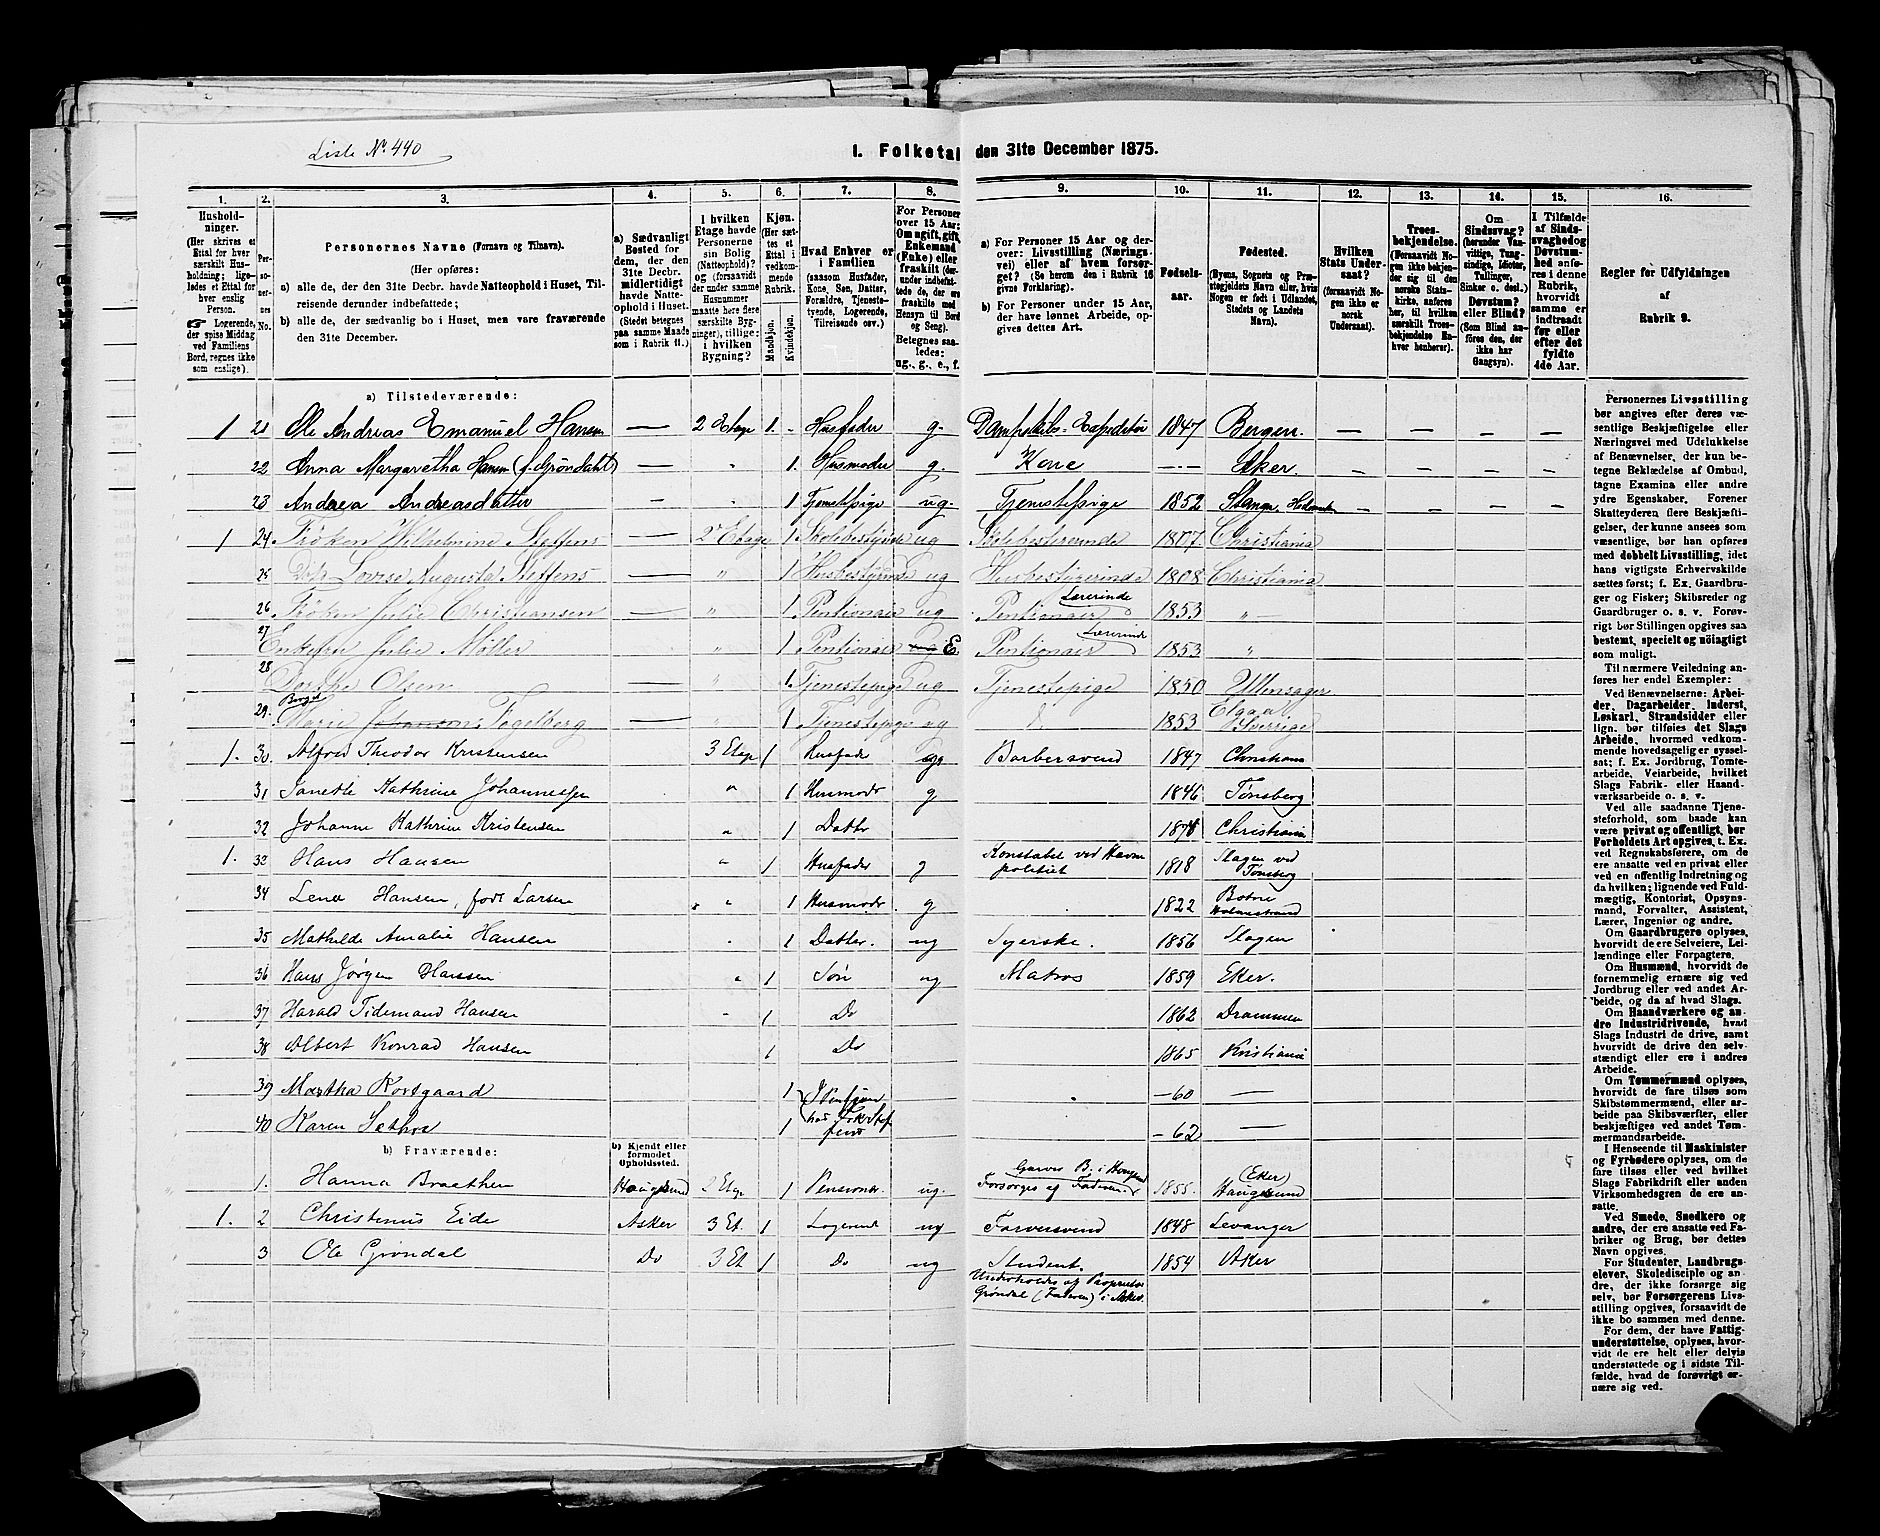 Liste No. 440
1. Folketal den 31te December 1875.
1. 2. 3. 4. 5. 6. 7. 8. 9. 10. 11. 12. 13. 14. 15. 16.
Hushold-
ninger.
(Her skrives et
Ettal for hver
særskilt Hus-
holdning; lige-
ledes et Ettal for
hver enslig
Person.
☞ Logerende,
der spise Middag
ved Familiens
Bord, regnes ikke
som enslige).
Per-
so-
ner-
nes
No.
Personernes Navne (Fornavn og Tilnavn).
(Her opføres:
a) alle de, der den 31te Decbr. havde Natteophold i Huset, Til-
reisende derunder indbefattede;
b) alle de, der sædvanlig bo i Huset, men vare fraværende
den 31te December.
a) Sædvanligt
Bosted for
dem, der den
31te Decbr.
midlertidigt
havde Natte-
ophold i Huset.
(Stedet betegnes
paa samme Maade
som i Rubrik 11.)
I hvilken
Etage havde
Personerne
sin Bolig
(Natteophold)?
og (forsaavidt
der under samme
Husnummer
maatte høre flere
særskilte Byg-
ninger), tillige:
i hvilken
Bygning?
Kjøn.
(Her sæt-
tes et
Ettal i
vedkom-
mende
Rubrik.
Mandkjøn.
Kvindekjøn.
Hvad Enhver er
i Familien
(saasom Husfader,
Kone, Søn, Datter,
Forældre, Tjeneste-
tyende, Logerende,
Tilreisende osv.)
For Personer
over 15 Aar:
Om ugift, gift,
Enkemand
(Enke) eller
fraskilt (der-
under indbefat-
tede de, der ere
fraskilte med
Hensyn til Bord
og Seng).
Betegnes saa-
ledes:
ug., g., e., f.
a) For Personer 15 Aar og der-
over: Livsstilling (Nærings-
vei) eller af hvem forsør-
get? (Se herom den i Rubrik 16
givne Forklaring).
b) For Personer under 15 Aar,
der have lønnet Arbeide, op-
gives dettes Art.
Fødsels-
aar.
Fødested.
(Byens, Sognets og Præ-
stegjeldets Navn eller, hvis
Nogen er født i Udlandet,
Stedets og Landets
Navn).
Hvilken
Stats Under-
saat?
(forsaavidt No-
gen ikke er
norsk
Undersaat).
Troes-
bekjendelse.
(Forsaavidt No-
gen ikke bekjen-
der sig til den
norske Stats-
kirke, anføres
her, til hvilken
særskilt Troes-
bekjendelse En-
hver henhører).
Om
Sindssvag?
(herunder Van-
vittige, Tung-
sindige, Idioter,
Tullinger,
Sinker o. desl.)
Døvstum?
eller Blind?
(Som Blind an-
føres den, der
ikke har
Gangsyn).
I Tilfælde
af Sinds-
svaghed og
Døvstum-
hed anfø-
res i denne
Rubrik,
hvorvidt
samme er
indtraadt
før eller
efter det
fyldte
4de Aar.
Regler for Udfyldningen
af
Rubrik 9.
a) Tilstedeværende:
1 21 Ole Andreas Emanuel Hansen — 2 Etage 1. - Husfader g. Dampskibs-Expeditør 1847 Bergen. — — — —
22 Anna Margaretha Hansen (f. Grøndahl) — " 1. Husmoder g. Kone —"— Aker. — — — —
23 Andrea Andreasdatter — " 1 Tjenestepige ug. Tjenestepige 1852 Stange, Hedemarken — — — —
1 24 Frøken Wilhelmine Steffens — 2 Etage 1 Skolebestyrerinde ug Skolebestyrerinde 1807. Christiania
25 Do Lovise Augusta Steffens — " 1 Husbestyrerinde ug Husbestyrerinde 1808 Christiania
26 Frøken Julie Christiansen — " 1 Pentionair ug Pentionair Lærerinde 1853 "
27 Enkefru Julie Møller " 1 Pentionair ug E Pentionair Lærerinde 1853 "
28 Dorthe Olsen " 1 Tjenestepige ug Tjenestepige 1850 Ullensager
29. Marie Johansen Fogelberg — " 1 Tjenestepige ug d 1853 Sverrige
1. 30. Alfred Theodor Kristensen 3 Etage 1 Husfader g Barbersvend 1847 Christiania
31 Janette Kathrine Johannesen " 1 Husmodr g 1846 Tønsberg
32 Johanne Kathrine Kristensen " 1 Datter 1874 Christiania
1. 33 Hans Hansen " 1 Husfader g Konstabel ved Havne politiet 1818 Slagen ved Tønsberg
34 Lena Hansen, født Larsen " 1 Husmodr g 1822 Botne Holmestrand
35 Mathilde Amalie Hansen " 1 Datter. ug Syerske. 1856 Slagen
36 Hans Jørgen Hansen " 1 Søn ug Matros 1859 Eker.
37 Harald Tidemand Hansen " 1 Do 1862 Drammen
38 Albert Konrad Hansen 1 Do 1865 Kristiania
39 Martha Kortgaard 1 I Pension —60 —
40 Karen Sæthre 1 hos Frk. Steffens —62 —
b) Fraværende:
b) Kjendt eller
formodet
Opholdssted.
1. Hanna Braathen Haugsund 2 Etage 1 Pensionær ug. Forsørges af Faderen Garver B. i Haugsund 1855. (Eker) Haugsund
1. 2 Christenus Eide Asker 3 Et. 1 Logerende ug Farversvend 1848 Levanger
3 Ole Grøndal Do 3 Et 1 Do ug Student. 1854 Aker
Underholdes af Proprietær
Grøndal (Faderen) i Asker.
Personernes Livsstilling
bør angives efter deres væ-
sentlige Beskjæftigelse eller
Næringsvei med Udelukkelse
af Benævnelser, der kun be-
tegne Beklædelse af Ombud,
tagne Examina eller andre
ydre Egenskaber. Forener
Skatteyderen flere Beskjæfti-
gelser, der kunne ansees som
væsentlige, bør han opføres
med dobbelt Livsstilling, idet
hans vigtigste Erhvervskilde
sættes først; f. Ex. Gaardbru-
ger og Fisker; Skibsreder og
Gaardbruger o. s. v. Forøv-
rigt bør Stillingen opgives saa
bestemt, specielt og nøiagtigt
som muligt.
Til nærmere Veiledning an-
føres her endel Exempler:
Ved Benævnelserne: Arbei-
der, Dagarbeider, Inderst,
Løskarl, Strandsidder eller
lign. bør tilføies det Slags
Arbeide, hvormed vedkom-
mende hovedsagelig er syssel-
sat; f. Ex. Jordbrug, Tomte-
arbeide, Veiarbeide, hvilket
Slags Fabrik- eller Haand-
værksarbeide o. s. v.
Ved alle saadanne Tjene-
steforhold, som baade kan
være privat og offentligt, bør
Forholdets Art opgives, t. Ex.
ved Regnskabsførere, om de
ere ansatte ved en privat eller
ved en offentlig Indretning og
da hvilken; lignende ved Fuld-
mægtig, Kontorist, Opsyns-
mand, Forvalter, Assistent,
Lærer, Ingeniør og andre.
Om Gaardbrugere oplyses,
hvorvidt de ere Selveiere, Lei-
lændinge eller Forpagtere.
Om Husmænd, hvorvidt de
fornemmelig ernære sig ved
Jordbrug eller ved andet Ar-
beide, og da af hvad Slags.
Om Haandværkere og an-
dre Industridrivende, hvad
Slags Industri de drive, samt
hvorvidt de drive den selv-
stændigt eller ere i andres
Arbeide.
Om Tømmermænd oplyses,
hvorvidt de fare tilsøs som
Skibstømmermænd, eller ar-
beide paa Skibsværfter, eller
beskjæftiges ved andet Tøm-
mermandsarbeide.
I Henseende til Maskinister
og Fyrbødere oplyses, om de
fare tilsøs eller ved hvilket
Slags Fabrikdrift eller anden
Virksomhedsgren de ere an-
satte.
Ved Smede, Snedkere og
andre, der ere ansatte ved Fa-
briker og Brug, bør dettes
Navn opgives.
For Studenter, Landbrugs-
elever, Skoledisciple og an-
dre, der ikke forsørge sig
selv, bør Forsørgerens Livs-
stilling opgives, forsaavidt de
ikke bo sammen med denne.
For dem, der have Fattig-
understøttelse, oplyses, hvor-
vidt de ere helt eller delvis
understøttede og i sidste Til-
fælde, hvad de forøvrigt er-
nære sig ved.